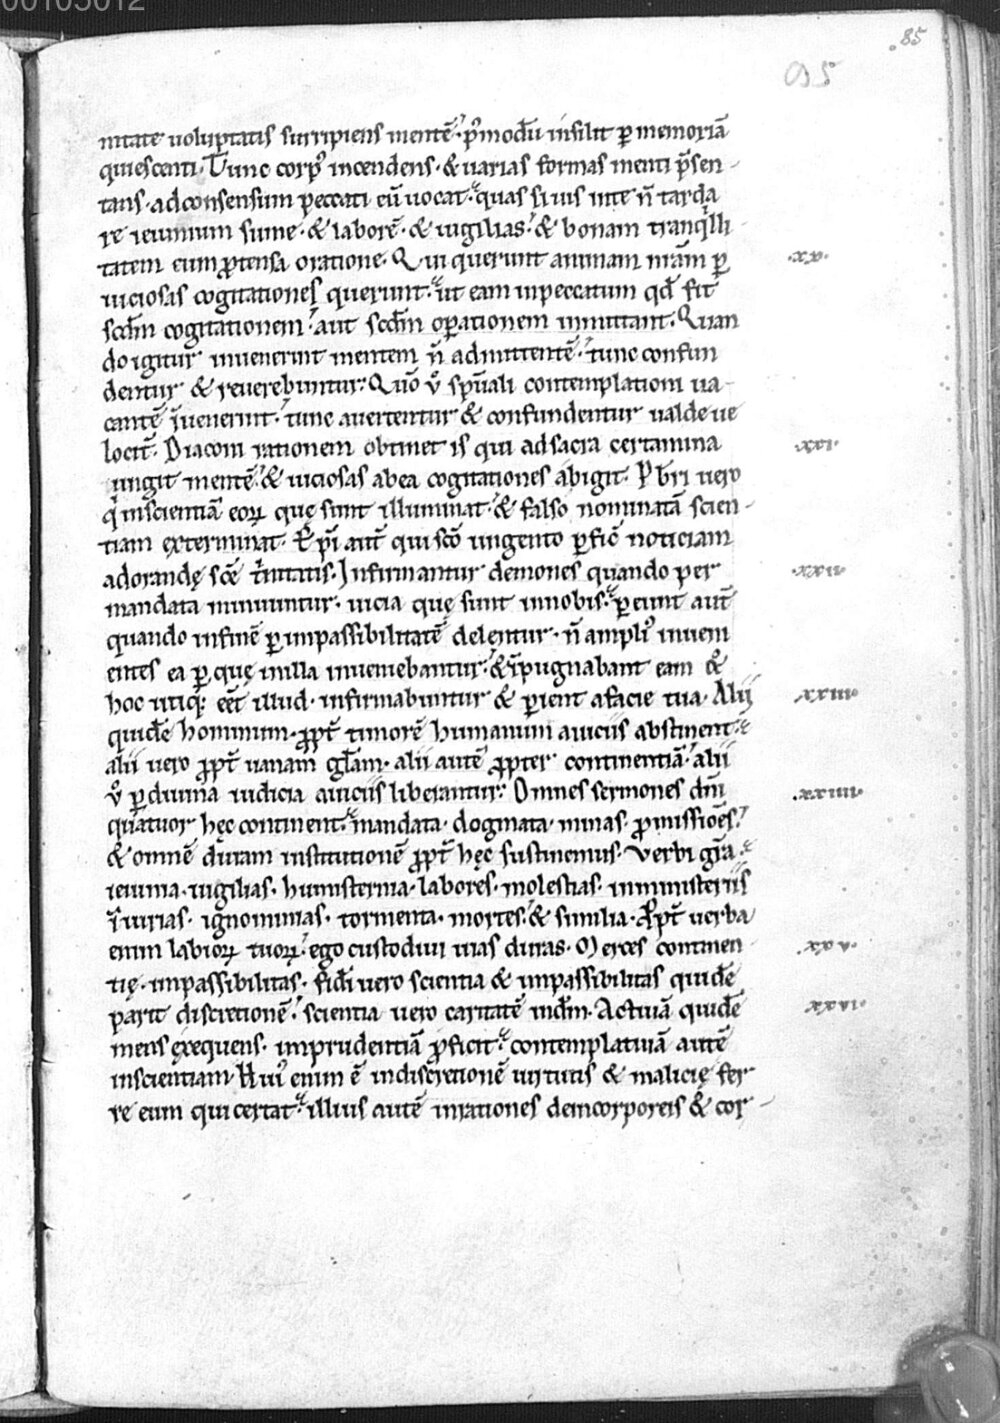 00105012
85
95
nitate uoluptatis surripiens mentē. p̄modū insilit ꝑ memoriā
quiescenti. Tunc corpꝰ incendens. & uarias formas menti p̄sen-
tans. ad consensum peccati eū uocat. quas si uis in te n̄ tarda
re ieiunium sume. & laborē. & uigilias. & bonam tranq̇lli-
tatem cum ꝓtensa oratione. Qui querunt animam nr̄am ꝑ .xx.
uiciosas cogitationes querunt. ut eam in peccatum qđ fit
scđm cogitationem. aut scđm oꝑationem inmittant. Quan
do igitur inuenerint mentem n̄ admittentē. tunc confun
dentur & reuerebuntur. Qūo ů spūali contemplationi ua-
cantē īuenerint. tunc auertentur & confundentur ualde ue
locit̄. Diaconi rationem obtinet is qui ad sacra certamina .xxi.
ungit mentē. & uiciosas ab ea cogitationes abigit. Pb̄ri uero
q̇ in scientiā eoꝝ quę sunt illuminat. & falso nominatā scien-
tiam exterminat. Ep̄i aut̄ qui sc̄o ungento ꝑfic̄ noticiam
adorandę sc̄e t̄nitatis. Infirmantur demones quando per .xxii.
mandata minuuntur. uicia quę sunt in nobis. ꝑeunt aut̄
quando in finē ꝑ impassibilitatē delentur. n̄ ampliꝰ inueni
entes ea ꝑ quę in illa inueniebantur. & īpugnabant eam &
hoc utiq; eēt illud. infirmabuntur & ꝑient a facie tua. Alii .xxiii.
quidē hominum. ꝓpt̄ timorē humanum a uiciis abstinent.
alii uero ꝓpt̄ uanam gl̄am. alii autē ꝓpter continentiā. alii
ů ꝑ diuina iudicia a uiciis liberantur. Omnes sermones dn̄i .xxiiii.
quatuor hęc continent. mandata. dogmata. minas. ꝓmissiōes.
& omnē duram institutionē ꝓpt̄ hęc sustinemus. Verbi gr̄a.
ieiunia. uigilias. humisternia. labores. molestias. in ministeriis
īiurias. ignominias. tormenta. mortes. & similia. Ꝓpt̄ uerba
enim labioꝝ tuoꝝ. ego custodiui uias duras. Merces continen- .xxv.
tię. impassibilitas. fidi uero scientia & impassibilitas quidē
parit discretionē. scientia uero caritatē in dm̄. Actiuā quidē .xxvi.
mens exequens. in prudentiā ꝓficit. contemplatiuā autē
in scientiam. Huiꝰ enim ē in discretionē uirtutis & malicię fer-
re eum qui certat. illius autē in rationes de incorporeis & cor-